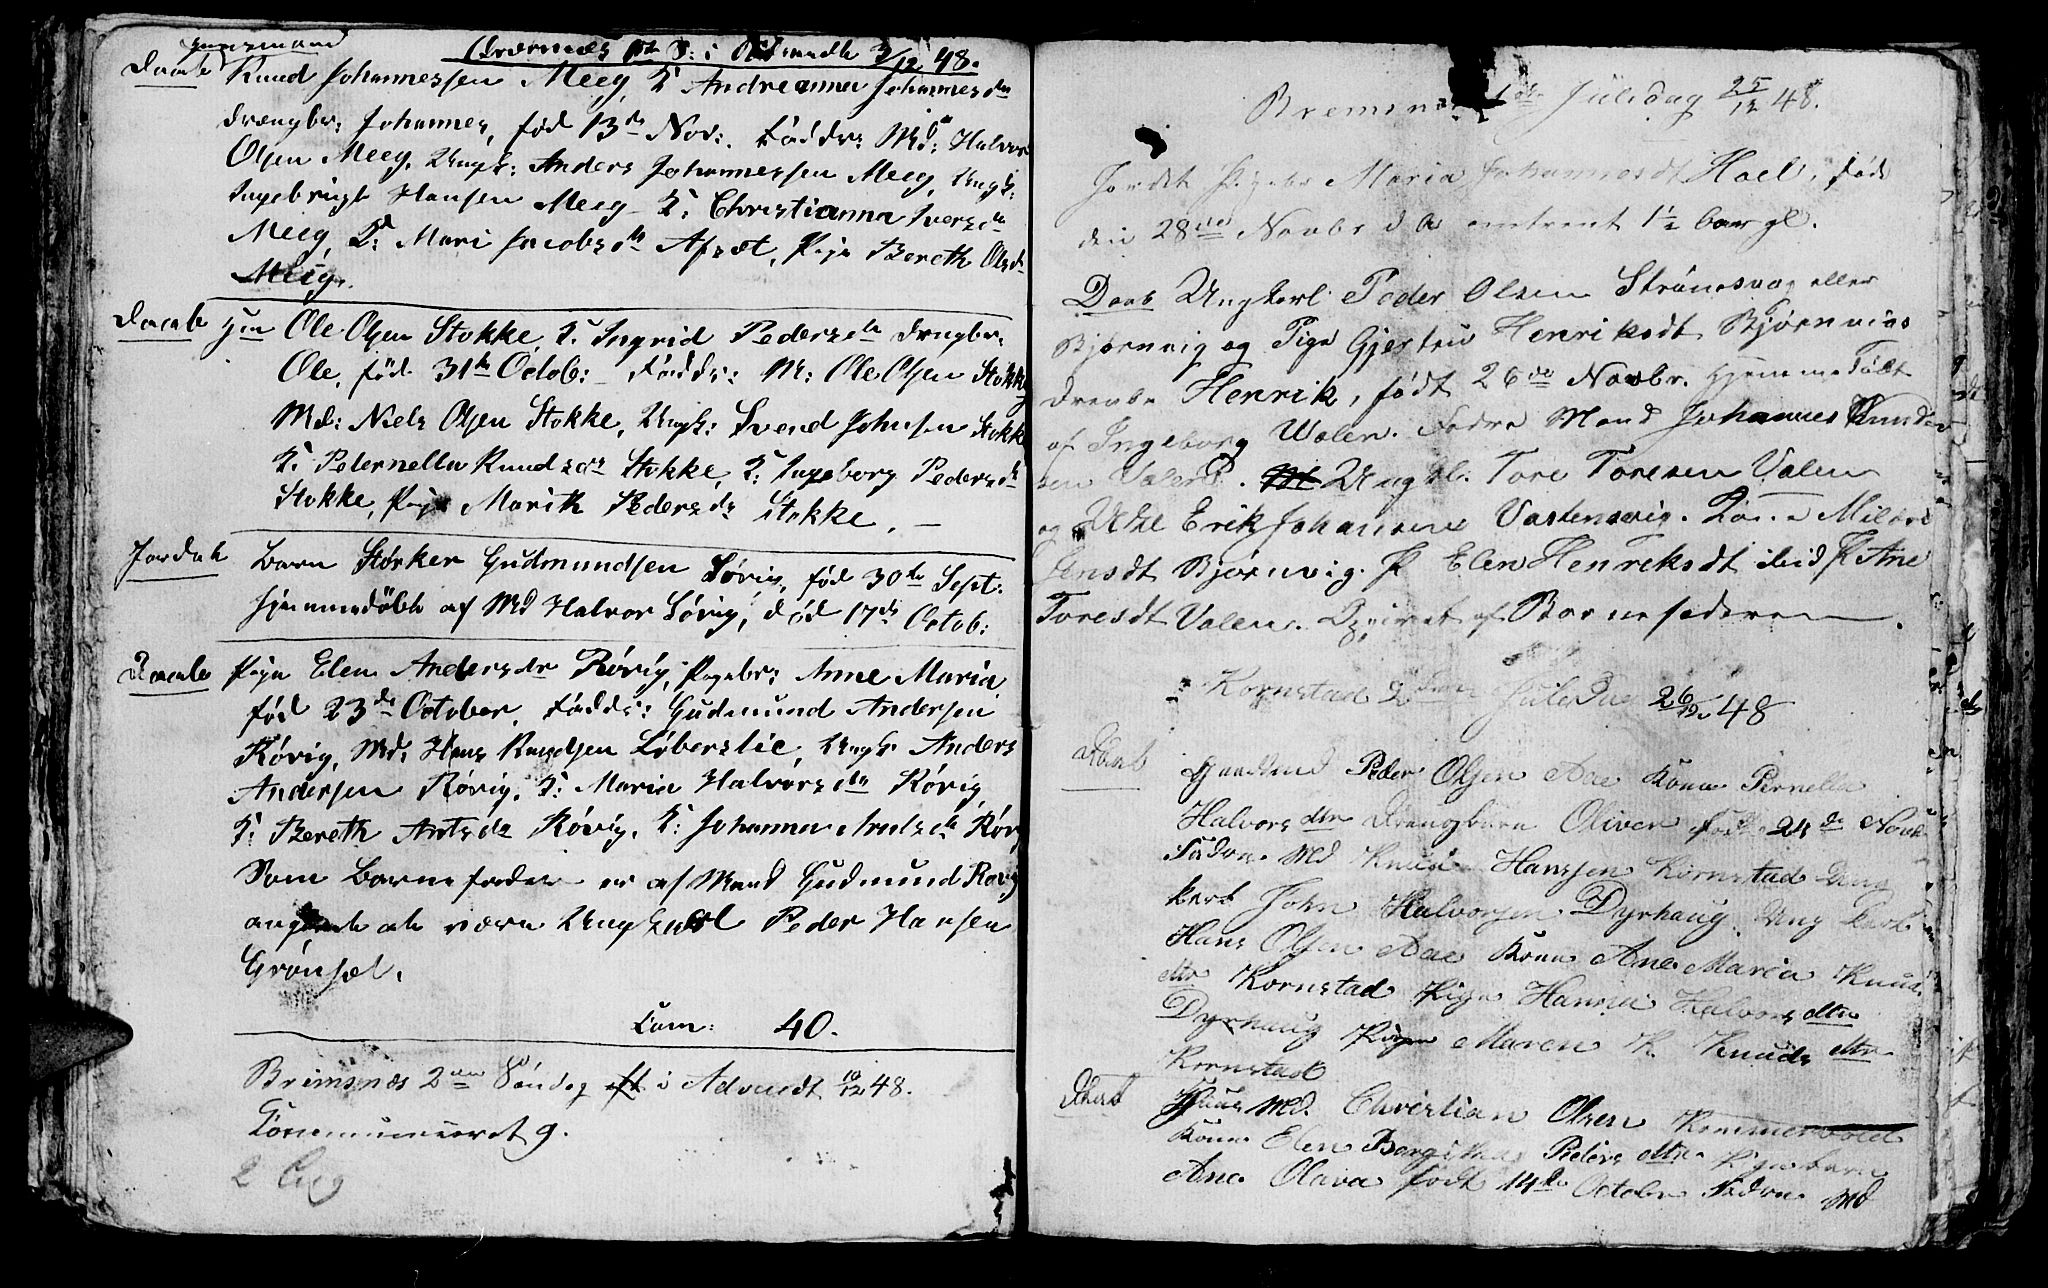 Qværnæs 1ste S: i Advendt 3/12 48.
Huusmand
Daab Knud Johannessen Meeg, K Andreanna Johannesdtr
drengbr: Johannes, fød 13de Nov: Faddr: Md: Halvor
Olsen Meeg, Ungk: Anders Johannessen Meeg, Ungk:
Ingebrigt Hansen Meeg, K: Christianna Iversdtr
Meeg, K: Mari Jacobsdtr Afsæt, Pige Bereth Olsdtr
Meeg.
Daab Hm Ole Olsen Stokke, K: Ingrid Pedersdtr drengbr:
Ole, fød 31te Octob: Faddr: M: Ole Olsen Stokke
Md: Niels Olsen Stokke, Ungk: Svend Johnsen Stokke
K: Peternella Knudsdtr Stokke, K: Ingeborg Pedersdtr
Stokke, Pige Marith Pedersdtr Stokke.
Jordet Barn Størker Gudmundsen Sørvig, fød 30te Sept:
hjemmedøbt af Md Halvor Sørvig, død 17de Octob:
Daab Pige Elen Andersdtr Røvig, Pigebr: Anne Maria
fød 23de October, Faddr: Gudmund Andersen
Røvig, Md: Hans Knudsen Løberslie, Ungk: Anders
Andersen Røvig, K: Maria Halvorsdtr Røvig
K: Bereth Antsdtr Røvig, K: Johanna Antsdtr Røvig
Som Barnefader er af Mand Gudmund Røvig
angivet at være Ungkarl Peder Hansen
Grønset.
Com: 40.
Brimsnæs 2den Søndag i Advendt 10/12 48.
Communiceret 9.
2
Bremsn 1ste Juledag 25/12 48.
Jordet Pigebr Maria Johannesdt Hoel, føde
den 28de Novbr død omtrent 1½ Gl.
Daab Ungkarl Peder Olsen Strømsvag eller
Bjørnvig og Pige Gjertru Henriksdt Bjørnvigs
drenbr Henrik, født 26de Novbr. Hjemme Døbt
af Ingeborg Walen. Fadre Mand Johannes Knud
sen Valen. Ungkl. Tore Toresen Valen
og Uke Erik Johansen Vastensvig. Kone Mildri
Jensdt Bjørnvig. P Elen Henreksdt ibid P Ane
Toresdt Valen. Opgivet af Barnefaderen
Kornstad 2den Juledag 26/12 48
Daab Huusmd Peder Olsen Aae Kone Pernella
Halvorsdtr Drengbarn Oliver født 24de Novbr
Fadre. Md Knud Hanssen Kornstad Ung
karl John Halvorsen Dyrhaug, Ung karl
Hans Olsen Aae Kone Ane Maria Knuds
dtr Kornstad Pige Hanna Halvorsdtr
Dyrhaug Pigen Maren K. Knudsdtr
Kornstad
Daab Huus Md. Christian Olsen Kommervold
Kone Elen Bergitha Pedersdtr Pigebarn
Ane Olava født 14de October Fadre Md